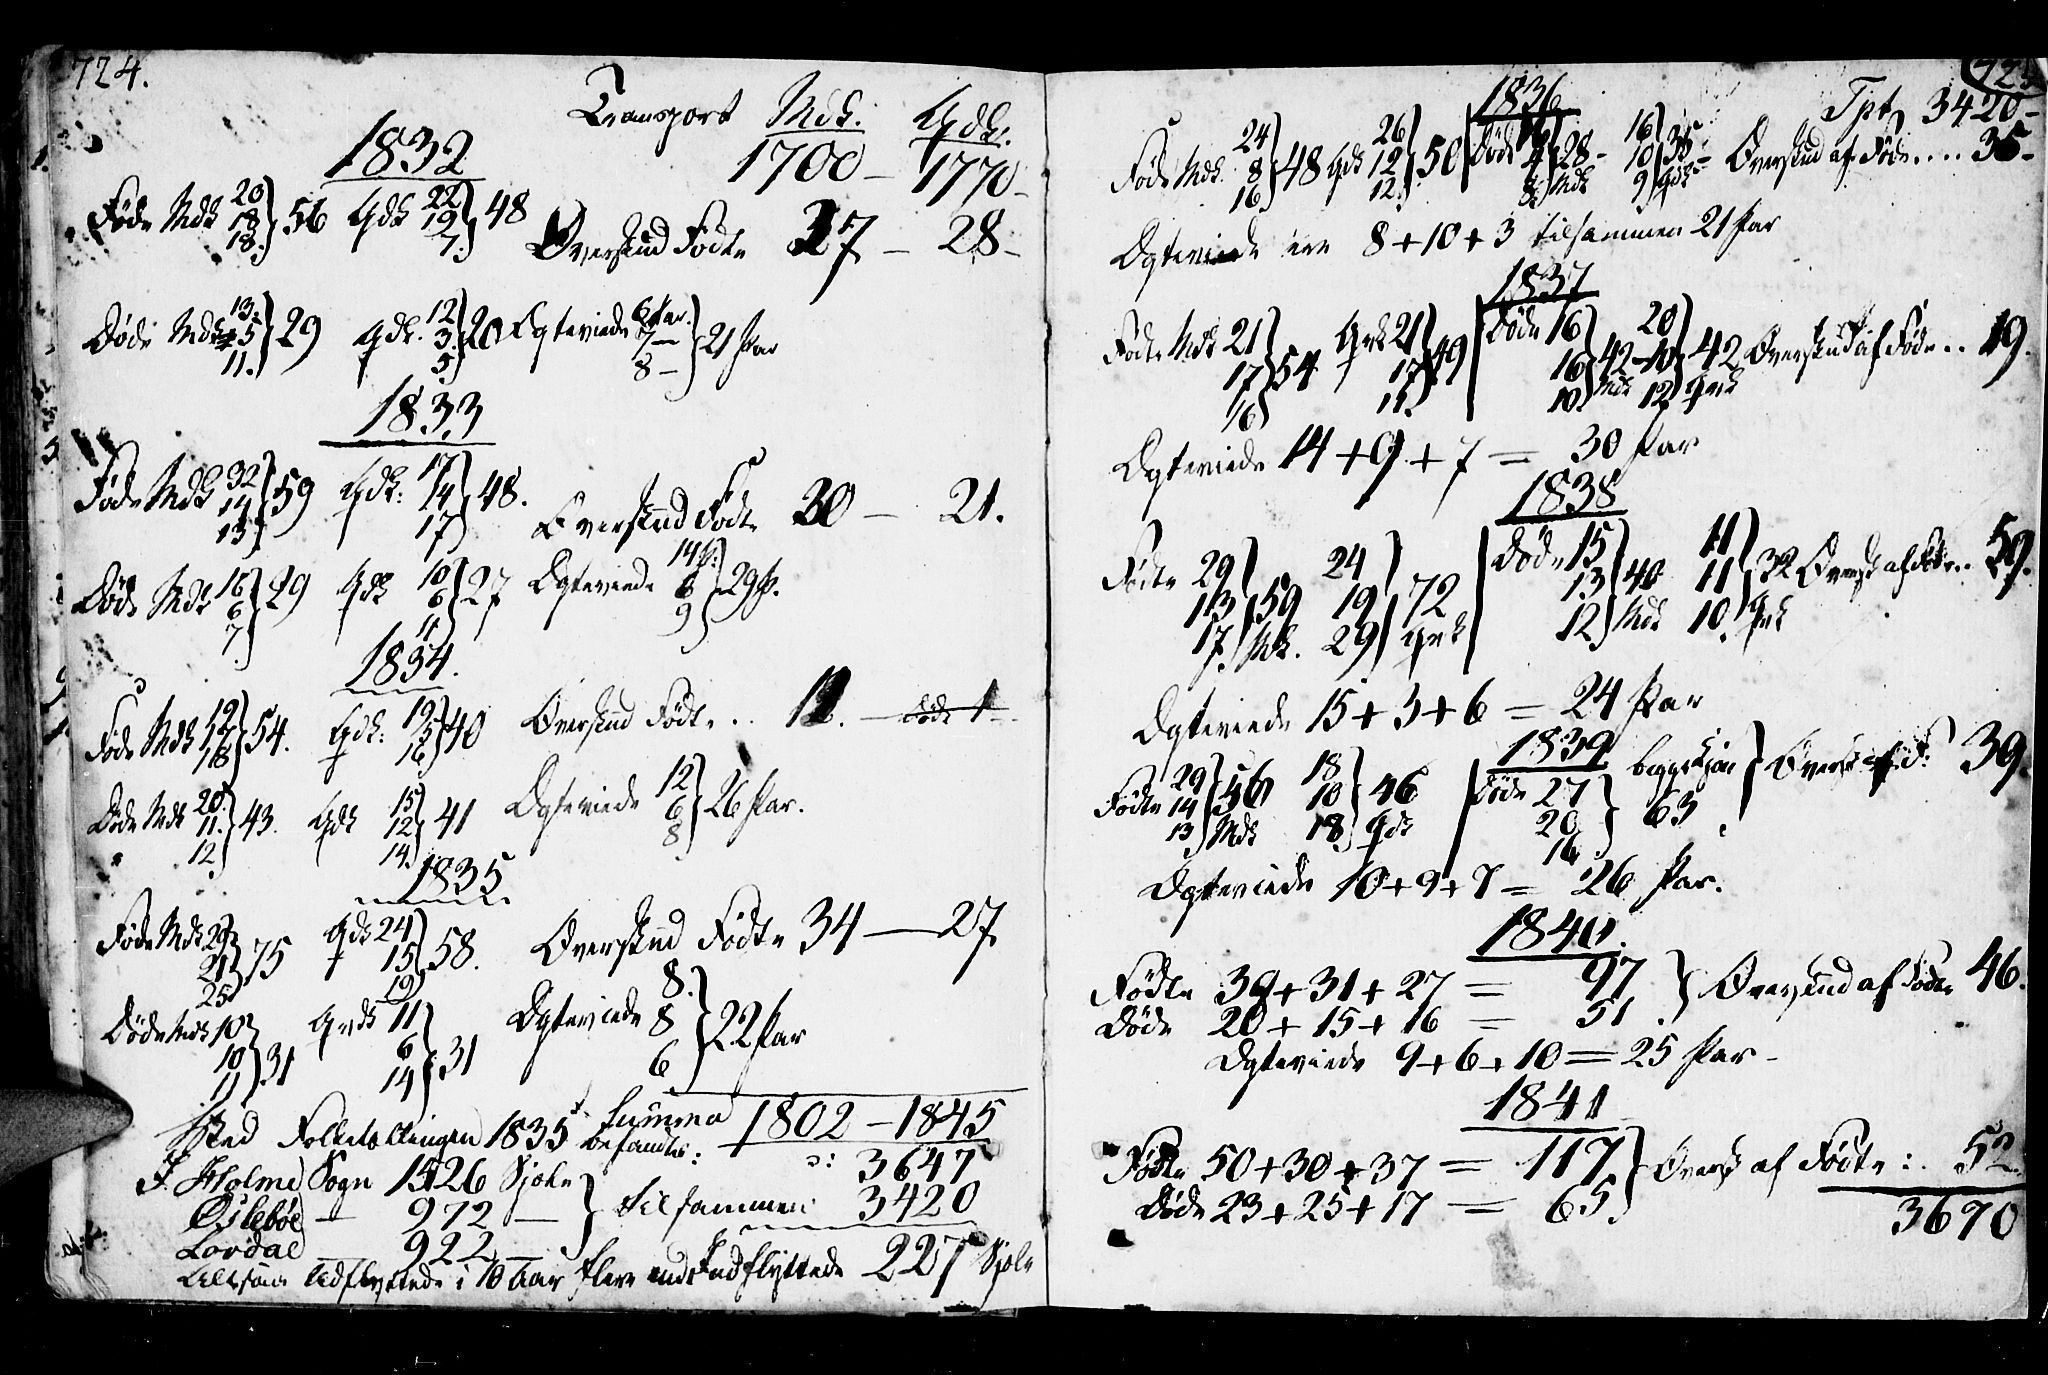 724.
Transport Mdk: Qvdk:
1832 1700 — 1770 —
Døde
Føde Mdk 20 18 18. } 56 Qvdk 22 19 7. } 48 Overskud Fødte 27 — 28 —
Døde Mdk 13. 5 11. } 29 Qdk. 12 3. 5 } 20 Egteviede 6 Par. 7 — 8 — } 21 Par
1833
Føde Mdk 32 14 13 } 59 Qdk: 17 14 17 } 48. Overskud Fødte 30 — 21.
Døde Mdk 16 6 7. } 29 Qdk 10 6 11 } 27 Egteviede 14 P. 6 9 } 29 P.
1834.
Føde Mdk 19 17 18 } 54. Qdk: 19 5 16 } 40 Overskud Fødte .. 11. — døde 1 —
Døde Mdk 20. 11. 12. } 43. Qdk 15 12 14. } 41 Egteviede 12 6 8 } 26 Par.
1835
Føde Mdk 29 21 25 } 75 Qdk 24 15 19 } 58. Overskud Fødte 34 — 27
Døde Mdk 10 10 11 } 31 Qvdk 11 6 14 } 31 Egteviede 8. 8 6 } 22 Par
Summa 1802 — 1845
Ved Folketællingen 1835 befandtes: ɔ: 3647
I Holme Sogn 1526 Sjæle
Øslebøe — 972 — } tilsammen 3420
Lovdal — 922 —
Altsaa Udflyttede i 10 Aar flere end Indflyttede 227 Sjæle
725
1836 Tpt 3420 —
Føde Mdk. 24 8 16 } 48 Qdk 26 12 12. } 50 Døde 16 4 8. } 28 — Mdk 16 10 9 } 35 — Qdk Overskud af Føde .... 35 —
Egteviede ere 8 + 10 + 3 tilsammen 21 Par
1837
Fødte Mdk 21 17 16 } 54 Qvk 21 17 11. } 49 Døde 16 16 10. } 42 — Mdk 20 10 12 } 42 Qvk Overskud af Føde .. 19.
Egteviede 14 + 9 + 7 = 30 Par
1838
Fødte 29 13 17. } 59 Mk. 24 19 29 } 72 Qvk Døde 15 13 12 } 40 Mdk 11 11 10. } 32 Qvk Oversk af Føde .. 59.
Egteviede 15 + 3 + 6 = 24 Par
1839
Fødte 29 14 13 } 56 Mdk 18 10 18. } 46 Qdk Døde 27 20 16 } 63 begge Kjøn } Oversk af F: 39.
Egteviede 10 + 9 + 7 = 26 Par.
1840.
Fødte 39 + 31 + 27 = 97
Døde 20 + 15 + 16 = 51 } Overskud af Fødte 46.
Egteviede 9 + 6 + 10 = 25 Par —
1841
Fødte 50 + 30 + 37 = 117
Døde 23 + 25 + 17 = 65 } Oversk af Fødte :. 52
3670